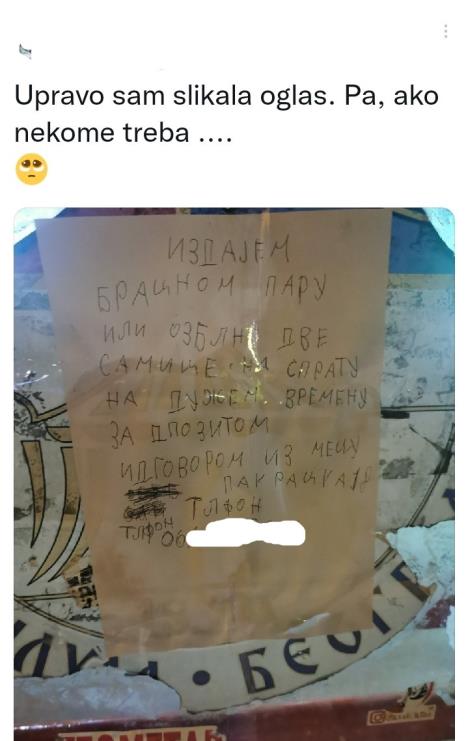 Upravo sam slikala oglas. Pa, ako
nekome treba ....
ИЗДАЈЕМ
БРАЦНОМ ПАРУ
ИЛИ ОЗБЛН ДВЕ
САМИЦЕ НА СПРАТУ
НА ДУЖЕМ. ВРЕМЕНУ
ЗА ДПОЗИТОМ
ИДГОВОРОМ ИЗ МЕЦУ
ПАК РАЦКА 18
ТЛФОН
ТЛФОН
Об
БЕОГ